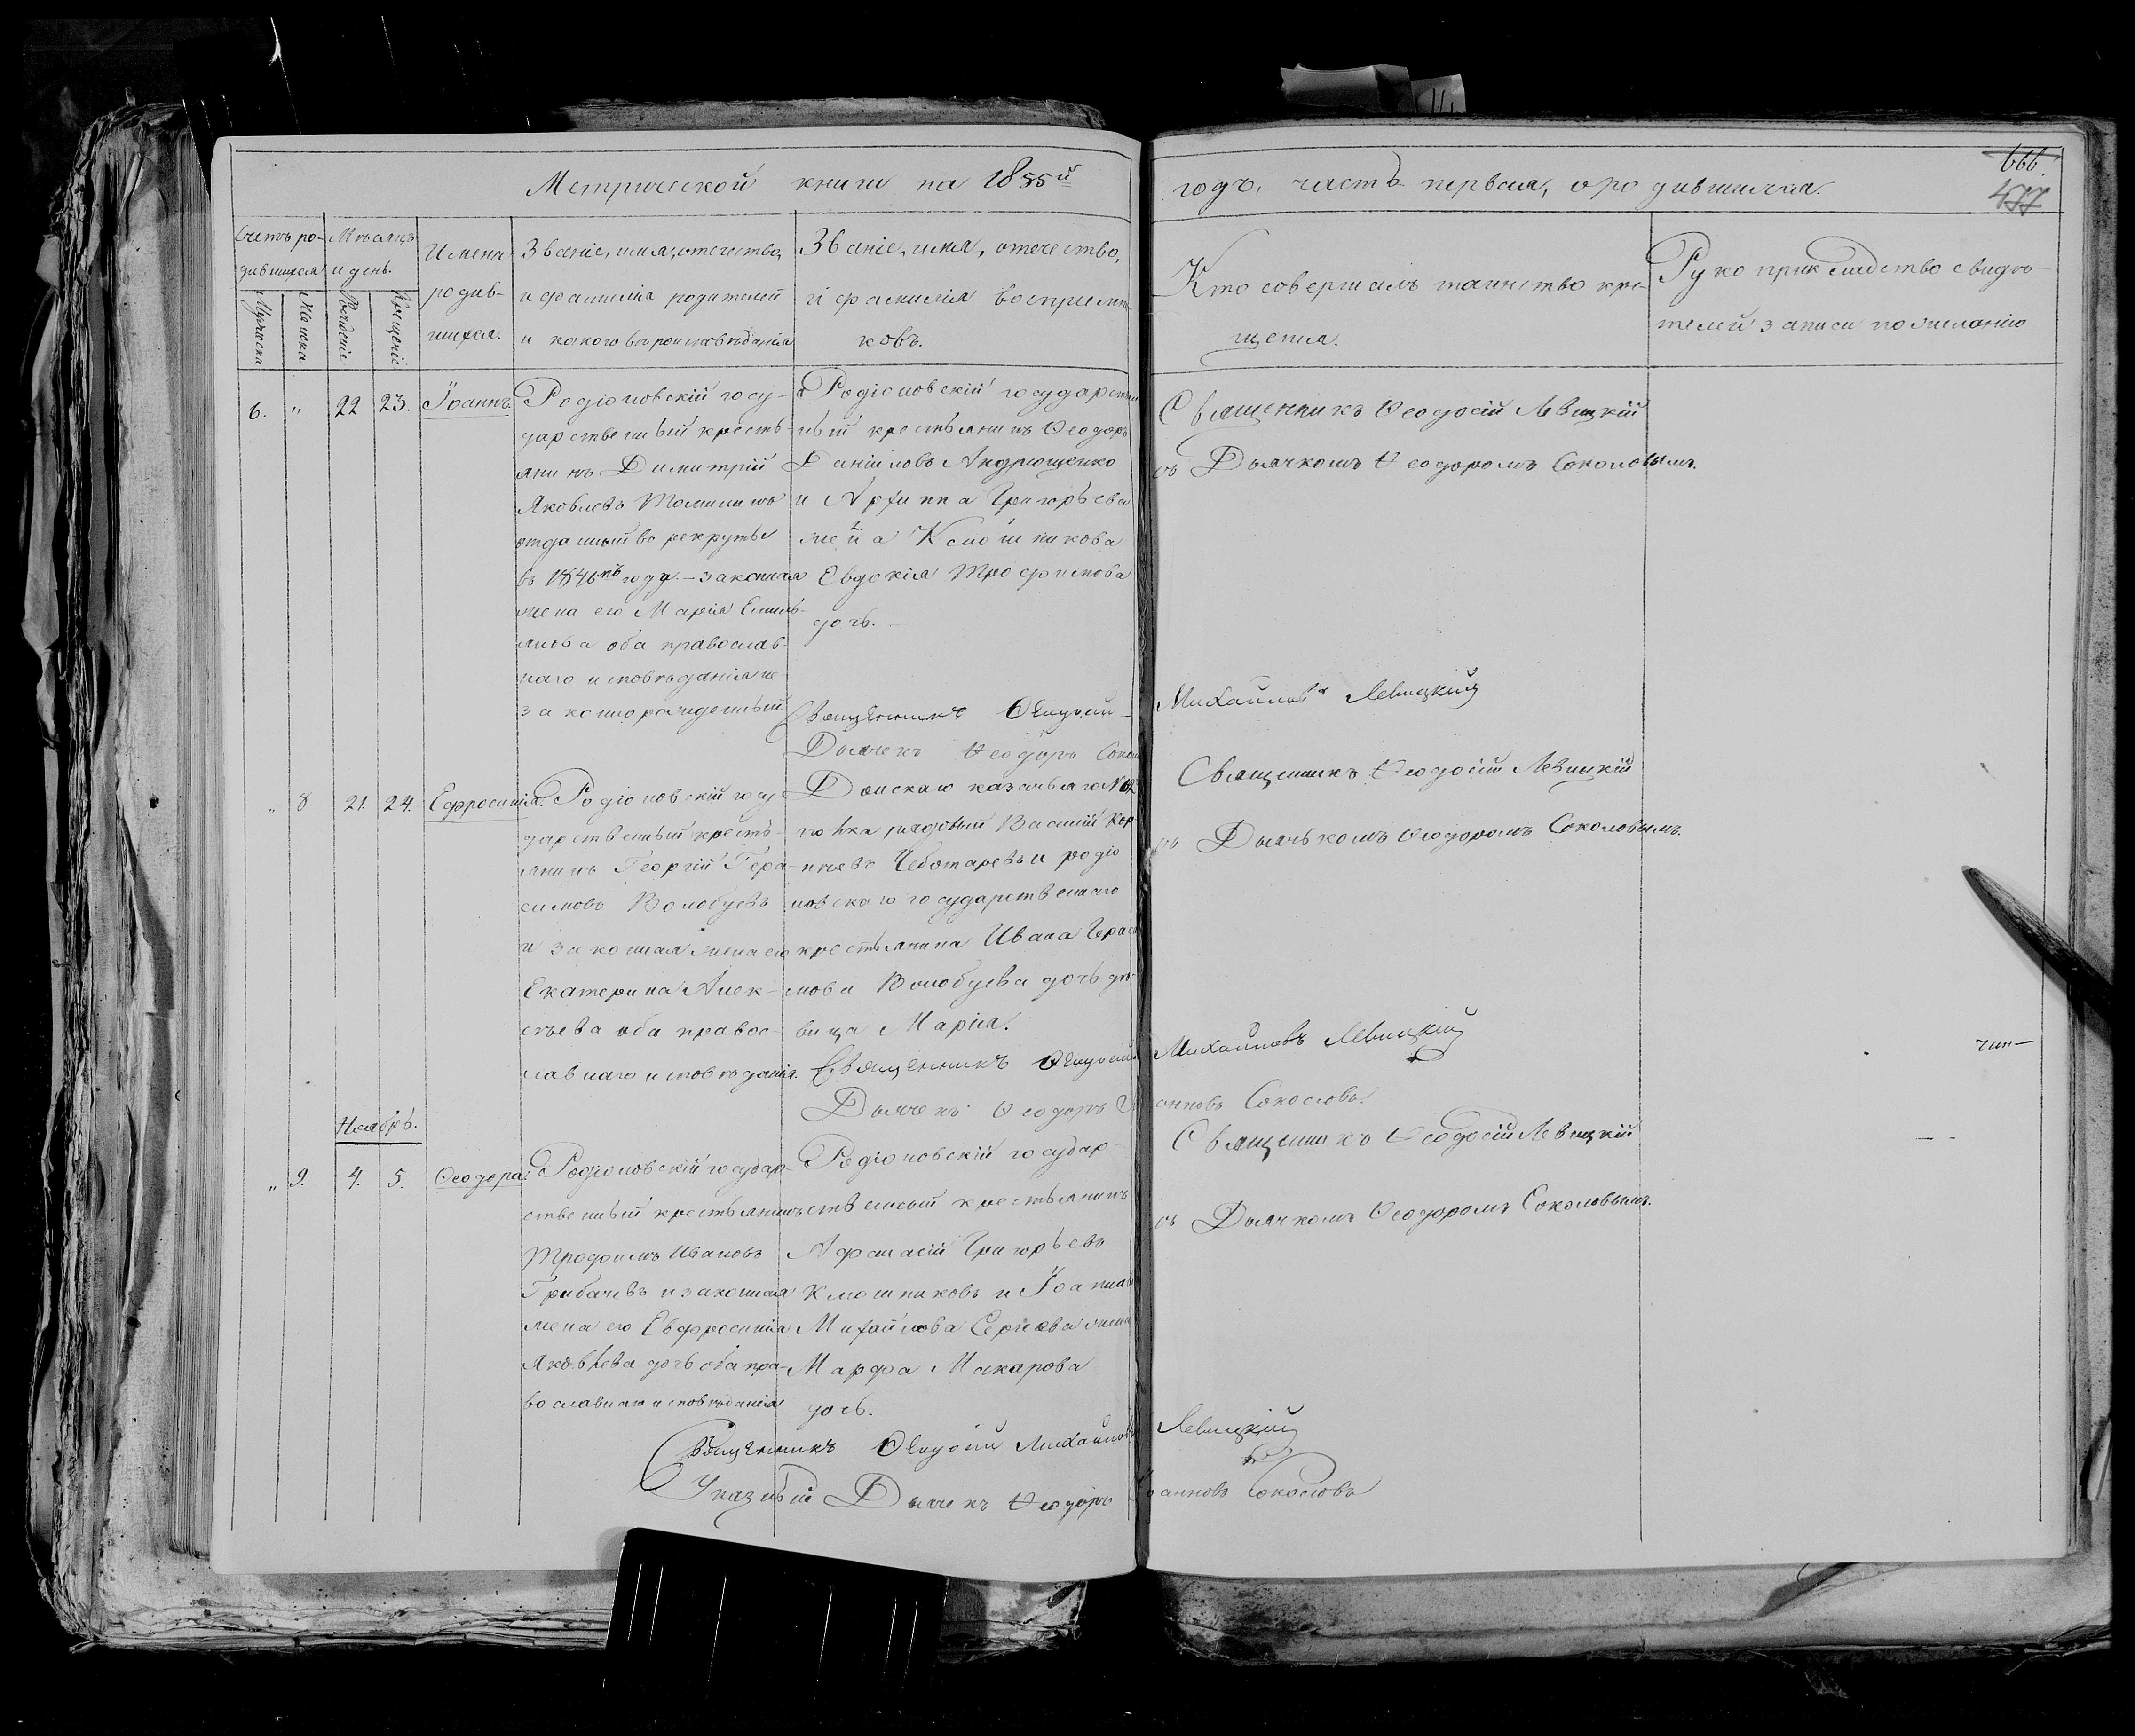 Метрической книги на 1855й
годъ, часть первая, о родившихся.
666.
477
Счетъ ро-
дившихся
Мужеска
Женска
Мѣсяцъ
и день.
Рожденіе
Крещеніе
Имена
родив-
шихся.
Званіе, имя, отечество,
и фамилія родителей
и какого вѣроисповѣданія
Званіе, имя, отечество,
и фамилія воспріемни-
ковъ.
Кто совершалъ таинство кре-
щенія.
Рукоприкладство свидѣ-
телей записи по желанію
6. " 22 23. Іоаннъ.
Родіоновскій госу-
дарственный кресть-
янинъ Димитрій
Яковлевъ Томилинъ
отданный въ рекруты
въ 1846мъ году. – законная
жена его Марія Емель-
янова оба православ-
наго исповѣданія не-
законнорожденный
Родіоновскій государствен
ный крестьянинъ Ѳеодоръ
Даніиловъ Андрющенко
и Архиппа Григорьева
жена Клюшникова
Евдокія Трофимова
дочь.
Священникъ Ѳеодосій Левицкій
съ Дьячкомъ Ѳеодоромъ Соколовымъ.
Священникъ Ѳеодосій Михайловъ Левицкій
Дьячекъ Ѳеодоръ Сокол
" 8 21. 24. Ефросинія.
Родіоновскій госу-
дарственный кресть-
янинъ Георгій Гера-
симовъ Волобуевъ
и законная жена его
Екатерина Алек-
сѣева оба правос-
лавнаго исповѣданія.
Донскаго казачьяго №
полка рядовый Василій Кор-
нѣевъ Чеботаревъ и родіо
новскаго государственнаго
крестьянина Ивана Гераси
мова Волобуева дочь дѣ-
вица Марія.
Священникъ Ѳеодосій Левицкій
съ Дьячькомъ Ѳеодоромъ Соколовымъ.
Священникъ Ѳеодосій Михайловъ Левицкій
Дьячекъ Ѳеодоръ Іоанновъ Соколовъ.
Ноябрь.
" 9. 4. 5. Ѳеодора.
Родіоновскій государ-
ственный крестьянинъ
Трофимъ Ивановъ
Грибачевъ и законная
жена его Евфросинія
Яковлева дочь оба пра-
вославнаго исповѣданія
Родіоновскій государ-
ственный крестьянинъ
Афанасій Григорьевъ
Клюшниковъ и Іоанна
Михайлова Сергіева жена
Марфа Макарова
дочь.
Священникъ Ѳеодосій Левицкій
съ Дьячкомъ Ѳеодоромъ Соколовымъ.
Священникъ Ѳеодосій Михайловъ Левицкій
Указный Дьячекъ Ѳеодоръ Іоанновъ Соколовъ